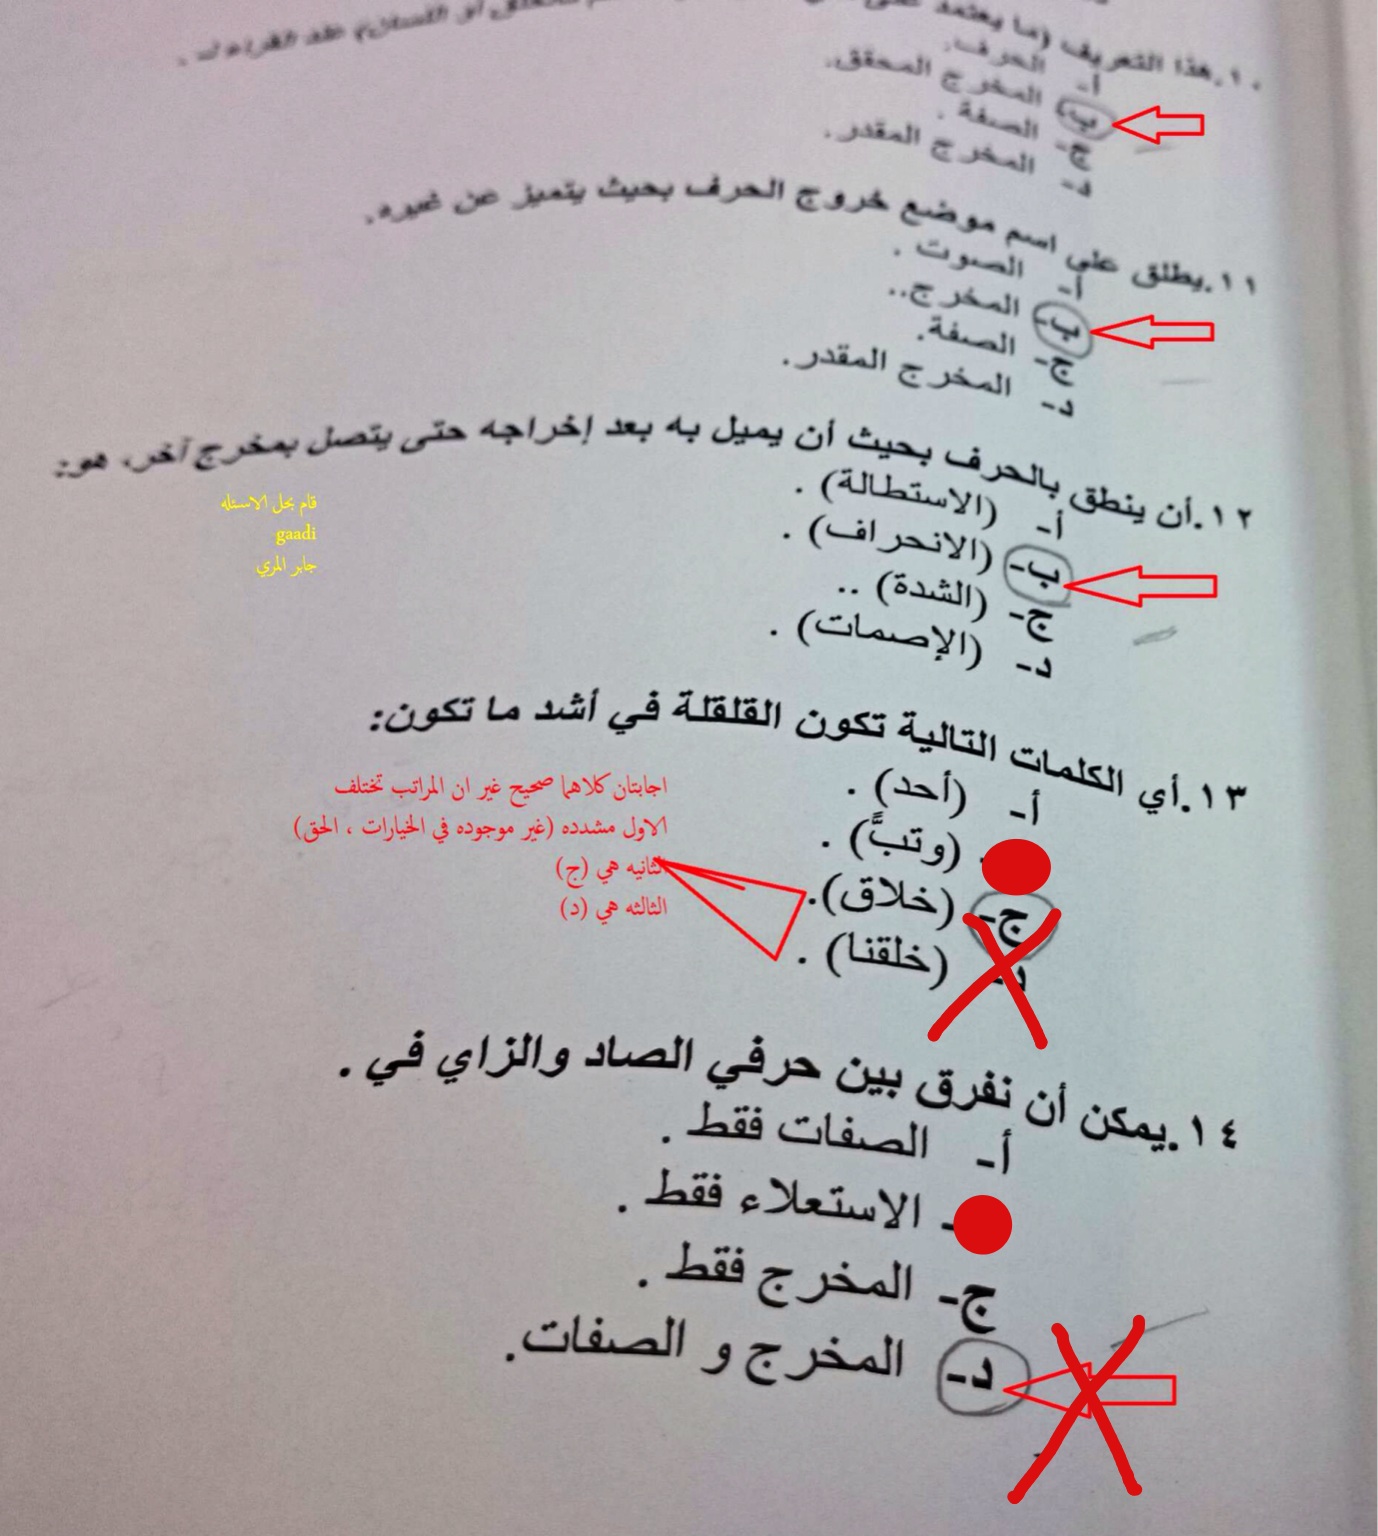 ١٠.هذا التعريف (ما يعتمد على
أ- الحرف.
ب- المخرج المحقق.
ج- الصفة .
د- المخرج المقدر.
١١.يطلق على اسم موضع خروج الحرف بحيث يتميز عن غيره.
أ- الصوت .
ب- المخرج..
ج- الصفة.
د- المخرج المقدر.
١٢.أن ينطق بالحرف بحيث أن يميل به بعد إخراجه حتى يتصل بمخرج آخر، هو:
أ- (الاستطالة) .
ب- (الانحراف) .
ج- (الشدة) ..
د- (الإصمات) .
قام بحل الاسئله
gaadi
جابر المري
١٣.أي الكلمات التالية تكون القلقلة في أشد ما تكون:
أ- (أحد) .
(وتبَّ) .
ج- (خلاق).
د- (خلقنا) .
اجابتان كلاهما صحيح غير ان المراتب تختلف
الاول مشدده (غير موجوده في الخيارات ، الحق)
الثانيه هي (ج)
الثالثه هي (د)
١٤.يمكن أن نفرق بين حرفي الصاد والزاي في .
أ- الصفات فقط .
- الاستعلاء فقط .
ج- المخرج فقط .
د- المخرج و الصفات.